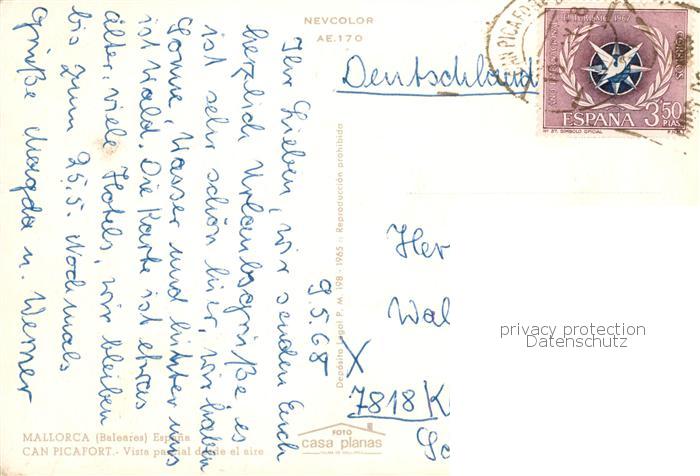 NEVCOLOR
AE.170
9.5.68
Ihr Lieben, wir senden Euch
herzlich Urlaubsgrüße es
ist sehr schön hier, wir haben
Sonne, Wasser und hinter uns
ist Wald. Die Karte ist etwas
älter, viele Hotels, wir bleiben
bis zum 25.5. Nochmals
Grüße Magda u. Werner
Depósito Legal P. M. 198 - 1965 :: Reproducción prohibida
Deutschland
ESPAÑA 3,50 PTAS
Her
Wal
X
7818/K
privacy protection
Datenschutz
MALLORCA (Baleares) España
CAN PICAFORT.- Vista parcial desde el aire
FOTO
casa planas